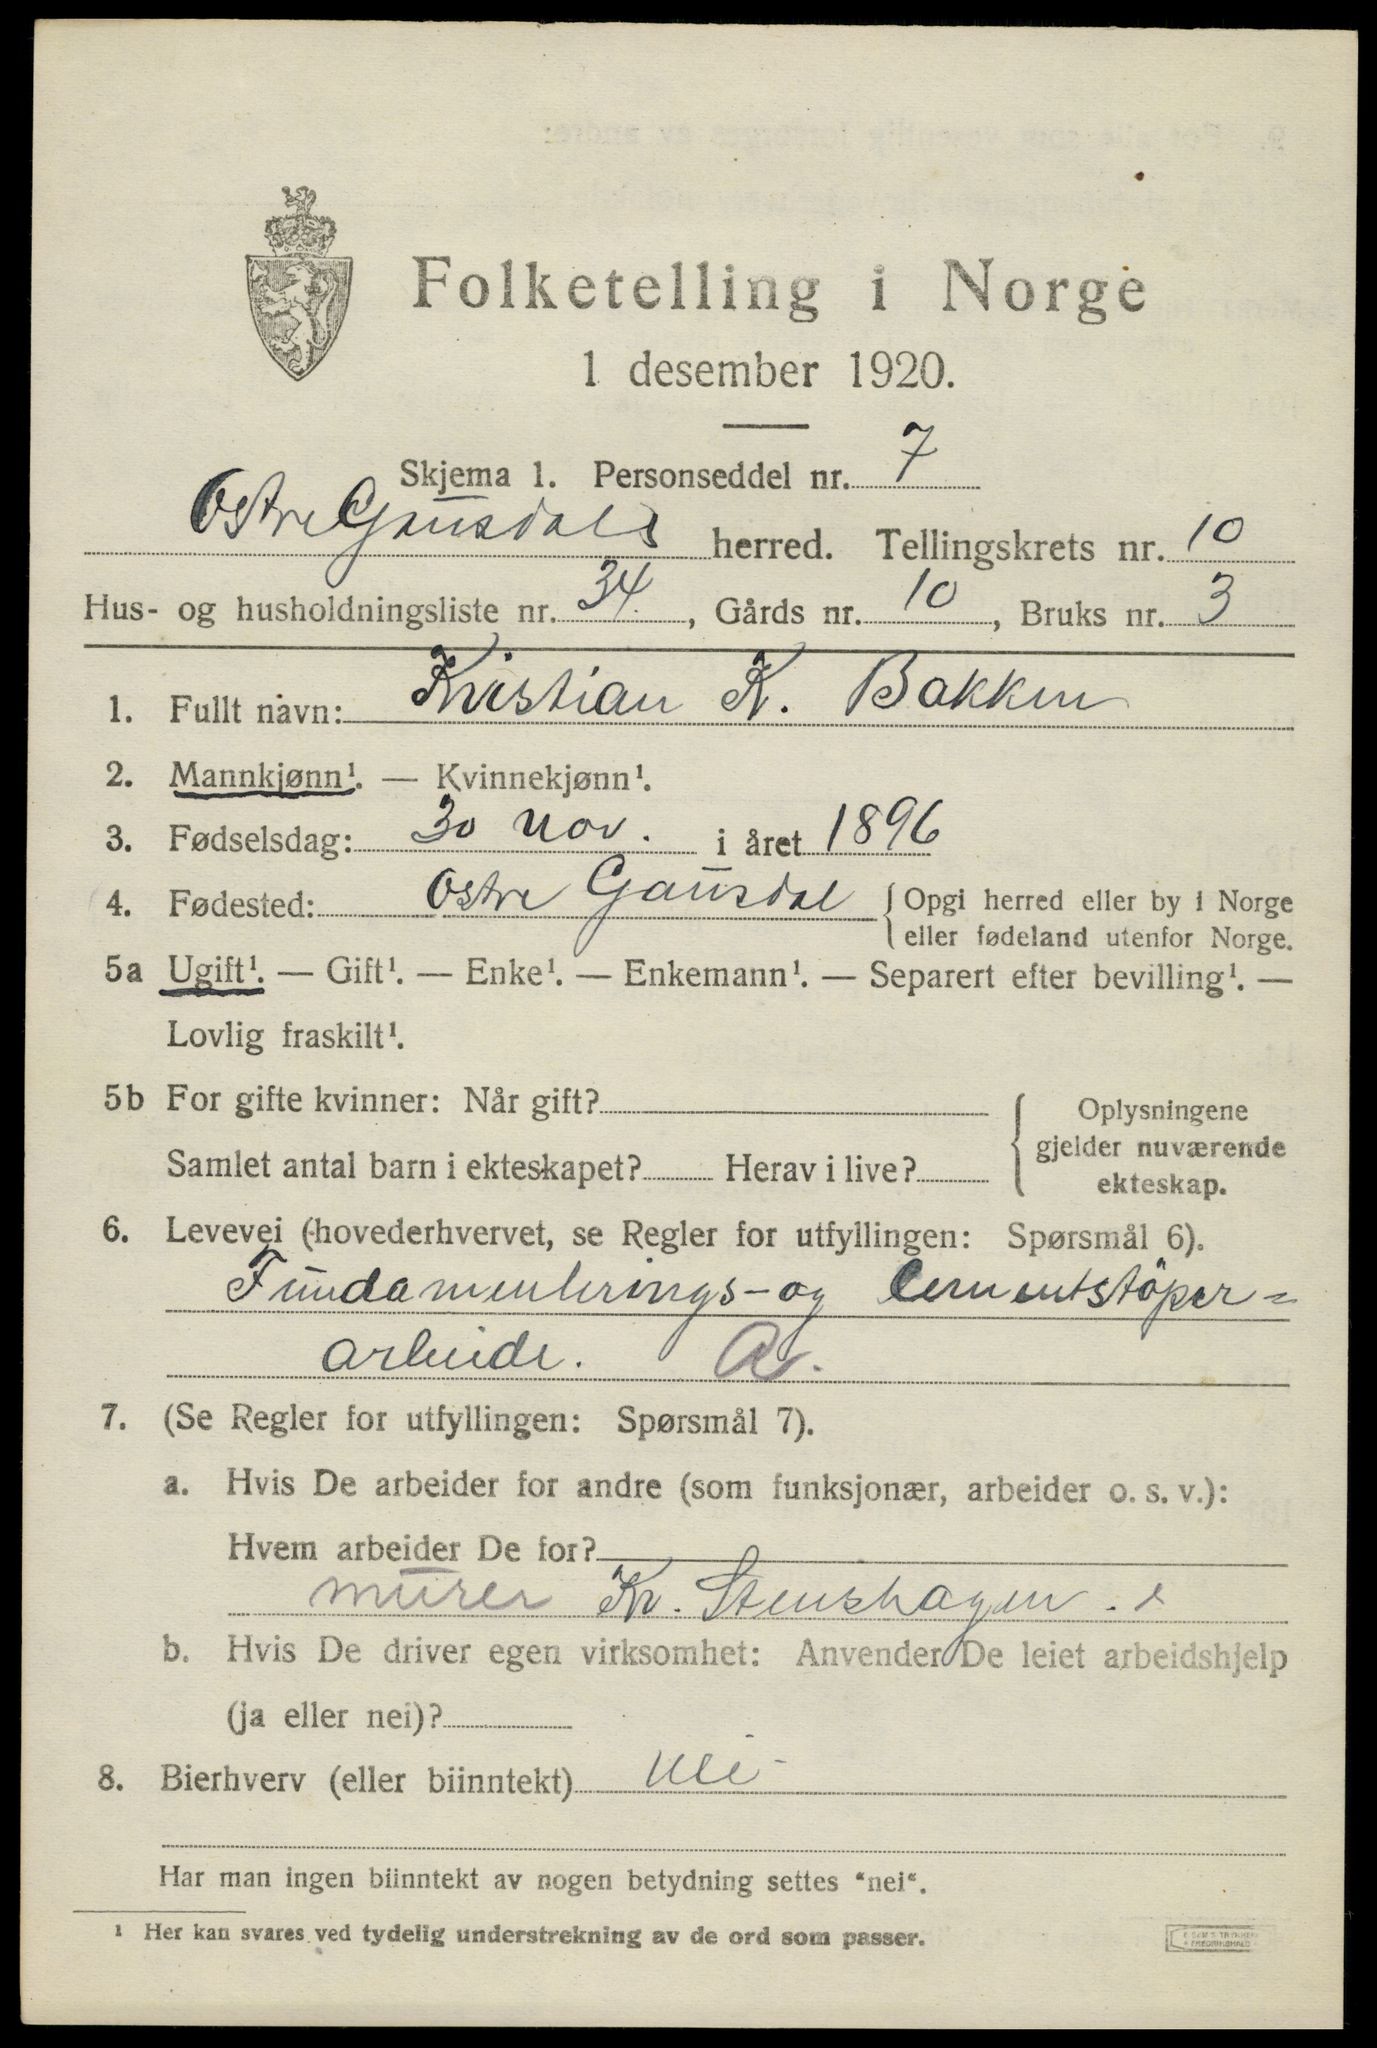 Folketelling i Norge
1 desember 1920.
Skjema 1. Personseddel nr. 7
Østre Gausdals herred. Tellingskrets nr. 10
Hus- og husholdningsliste nr. 34., Gårds nr. 10, Bruks nr. 3
1. Fullt navn: Kristian K. Bakken
2. Mannkjønn¹. — Kvinnekjønn¹.
3. Fødselsdag: 30 nov. i året 1896
4. Fødested: Østre Gausdal { Opgi herred eller by i Norge
eller fødeland utenfor Norge.
5a Ugift¹. — Gift¹. — Enke¹. — Enkemann¹. — Separert efter bevilling¹. —
Lovlig fraskilt¹.
5b For gifte kvinner: Når gift? { Oplysningene
gjelder nuværende
Samlet antal barn i ekteskapet? Herav i live?
ekteskap.
6. Levevei (hovederhvervet, se Regler for utfyllingen: Spørsmål 6).
Fundamenterings- og Cementstöper=
arbeide. A.
7. (Se Regler for utfyllingen: Spørsmål 7).
a. Hvis De arbeider for andre (som funksjonær, arbeider o. s. v.):
Hvem arbeider De for?
murer Kr. Stenshagen.
b. Hvis De driver egen virksomhet: Anvender De leiet arbeidshjelp
(ja eller nei)?
8. Bierhverv (eller biinntekt) nei
Har man ingen biinntekt av nogen betydning settes "nei".
¹ Her kan svares ved tydelig understrekning av de ord som passer.